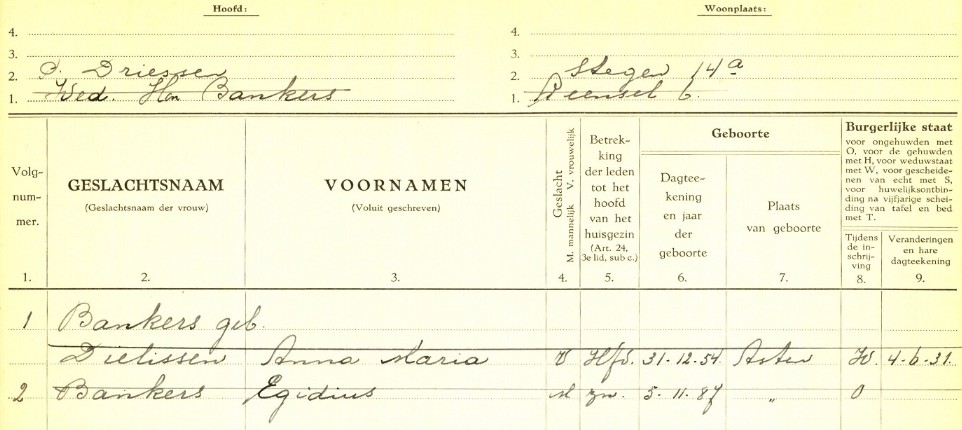 Hoofd: Woonplaats:
4. 4.
3. 3.
2. P. Driessen 2. Stegen 14a
1. Wed. Hen Bankers 1. Reensel 6.
Volg-
num-
mer.
1.
GESLACHTSNAAM
(Geslachtsnaam der vrouw)
2.
VOORNAMEN
(Voluit geschreven)
3.
Geslacht
M. mannelijk V. vrouwelijk
4.
Betrek-
king
der leden
tot het
hoofd
van het
huisgezin
(Art. 24,
3e lid, sub c.)
5.
Geboorte
Dagtee-
kening
en jaar
der
geboorte
6.
Plaats
van geboorte
7.
Burgerlijke staat
voor ongehuwden met
O, voor de gehuwden
met H, voor weduwstaat
met W, voor gescheide-
nen van echt met S,
voor huwelijksontbin-
ding na vijfjarige schei-
ding van tafel en bed
met T.
Tijdens
de in-
schrij-
ving
8.
Veranderingen
en hare
dagteekening
9.
1 Bankers geb.
Dielissen Anna Maria V Hfd. 31-12-54 Asten W. 4-6-31.
2 Bankers Egidius M zn. 5-11-87 " O